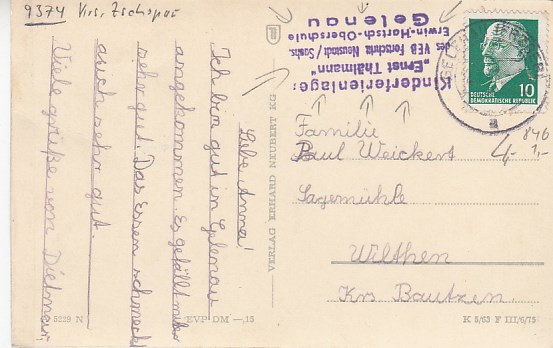 9374 Krs. Zschopau
Liebe Anna!
Ich bin gut in Gelenau
angekommen. Es gefällt mir
sehr gut. Das Essen schmeckt
auch sehr gut.
Viele grüße von Dietmar.
Kinderferienlager
"Ernst Thälmann"
des VEB Fortschritt Neustadt / Sachs.
Erwin-Hartsch-Oberschule
Gelenau
DEUTSCHE
DEMOKRATISCHE REPUBLIK
10
846
4,-
1,-
Familie
Paul Weickert
Sagemühle
Wilthen
Krs Bautzen
ERHARD NEUBERT KG
5229 N
EVP DM —,15
K 5/63 F III/6/75